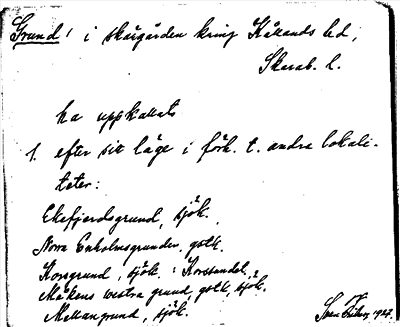 Grund! i skärgården kring Kållands hd,
Skarab. l.
ha uppkallats
1. efter sitt läge i förh. t. andra lokali-
teter:
Ekefjerdsgrund, sjök.
Norra Enholmsgrunden, gstk.
Korsgrund, sjök. : Korssundet, sjök.
Måkens westra grund, gstk, sjök.
Mellangrund, sjök.
1927.